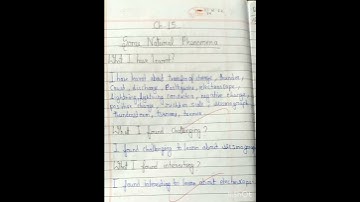 Ch 15
Some Natural Phenomena
What I have learnt?
I have learnt about transfer of charge, thunder,
Crust, discharge, Earthquake, electroscope,
lightning, lightning conductors, negative charge,
positive charge, seismograph,
thunderstorm, tsunami, tremor
What I found challenging?
I found challenging to learn about seismograph
What I found interesting?
I found interesting to learn about electroscope